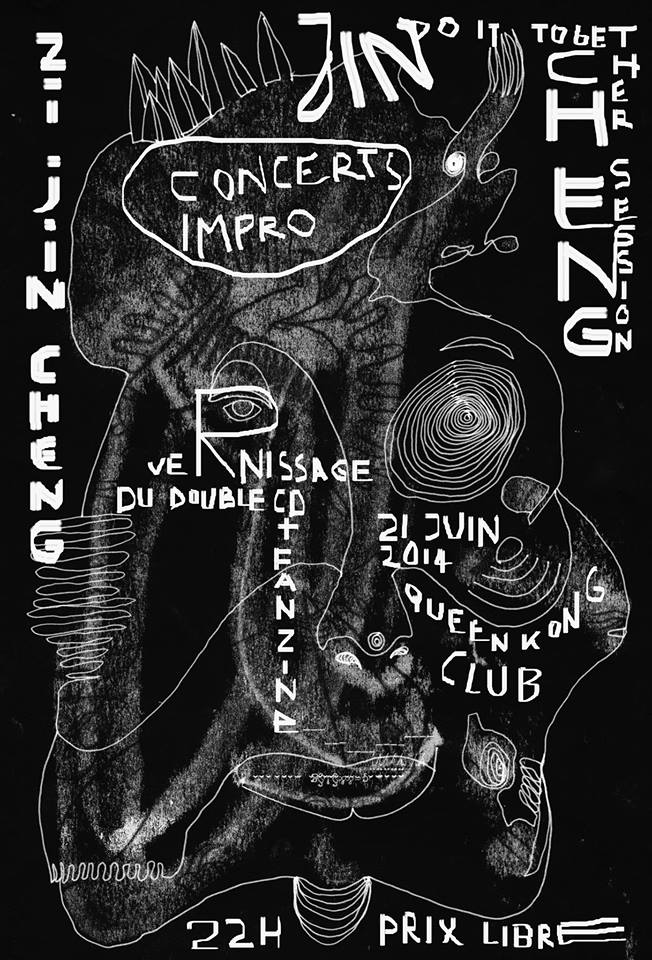 Zii JiN CHENG
JIN
CHENG
DO IT TOGETHER SESSION
CONCERTS
IMPRO
VERNISSAGE
DU DOUBLE CD
+ FANZINE
21 JUIN
2014
QUEEN KONG
CLUB
22H PRIX LIBRE